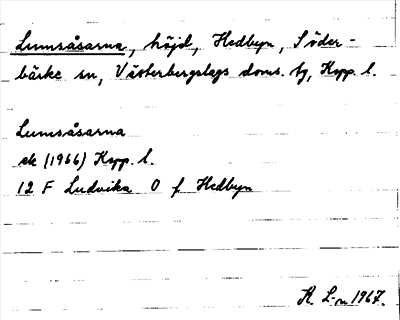 Lumsåsarna, höjd, Hedbyn, Söder-
bärke sn, Västerbergslags doms. tg, Kopp. l.
Lumsåsarna
ek (1966) Kopp. l.
12 F Ludvika O f Hedbyn
R. L-n 1967.